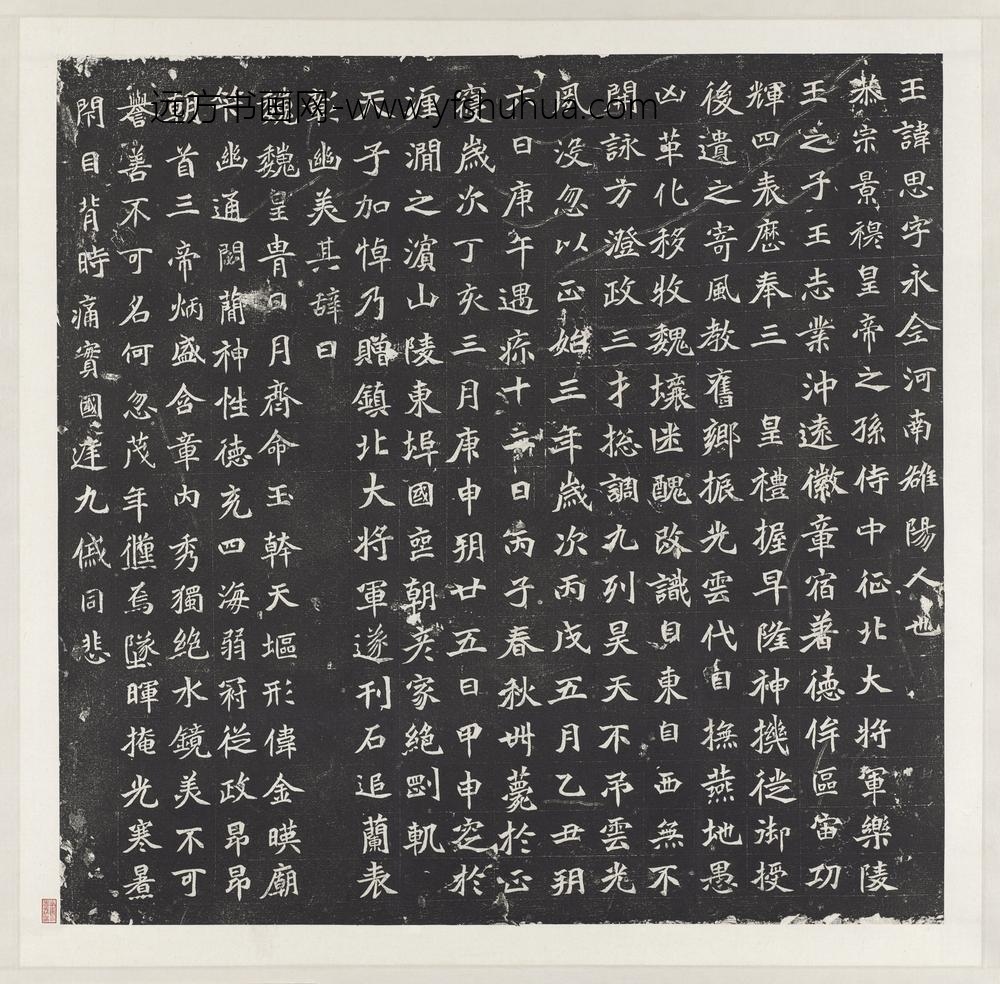 王諱思字永全河南雒陽人也
恭宗景穆皇帝之孫侍中征北大將軍樂陵
王之子王志業沖遠徽章宿著德侔區宙功
輝四表歷奉三 皇禮握早隆神機徙御授
後遺之寄風教舊鄉振光雲代自撫燕地愚
凶革化移牧魏壤迷醜改識自東自西無不
閑詠方澄政三才揔調九列昊天不弔雲光
罔沒忽以正始三年歲次丙戌五月乙丑朔
六日庚午遇疹十二日丙子春秋卌薨於正
寢歲次丁亥三月庚申朔廿五日甲申窆於
瀍澗之濱山陵東埠國堊朝彥家絕剛軌
天子加悼乃贈鎮北大將軍遂刊石追蘭表
幽美其辭曰
巍巍皇胄日月齊命玉幹天塸形偉金暎廟
幽通闕蘭神性德充四海弱冠從政昴昴
朝首三帝炳盛含章內秀獨絕水鏡美不可
譽善不可名何忽茂年殲焉墜暉掩光寒暑
閇目背時痛實國遳九慽同悲
远方书画网-www.yfshuhua.com